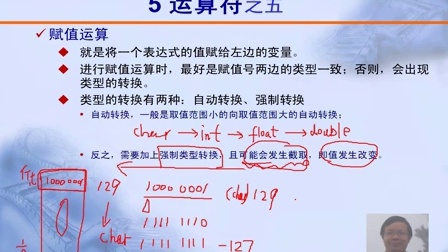 5 运算符之五
赋值运算
就是将一个表达式的值赋给左边的变量。
进行赋值运算时，最好是赋值号两边的类型一致；否则，会出现
类型的转换。
类型的转换有两种：自动转换、强制转换
自动转换，一般是取值范围小的向取值范围大的自动转换；
char → int → float → double
反之，需要加上强制类型转换，且可能会发生截取，即值发生改变。
1000 0001 129 1000 0001 (char) 129 .
char 1111 1110
1111 1111 -127